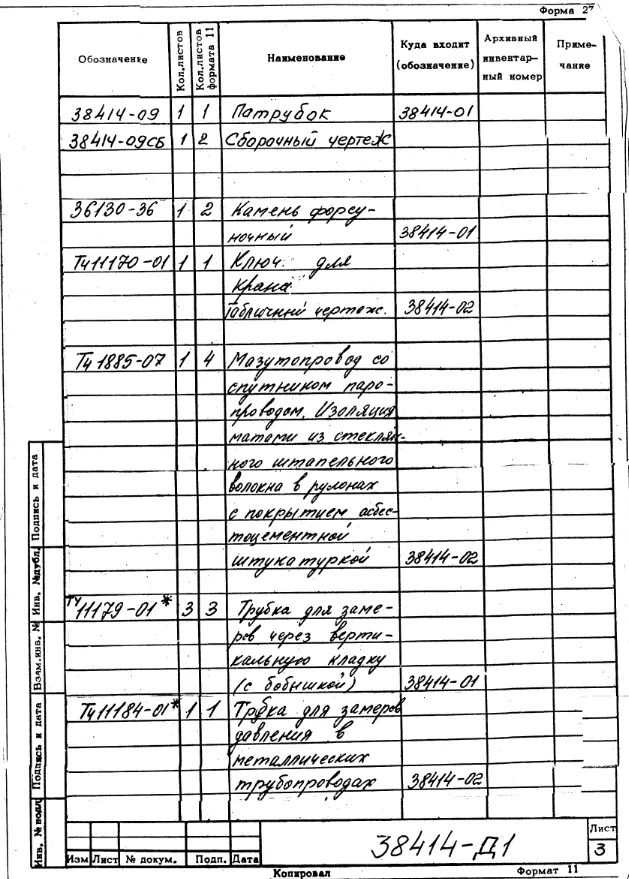 Форма 27
Обозначение Кол.листов Кол.листов формата 11 Наименование Куда входит (обозначение) Архивный инвентар- ный номер Приме- чание
38414-09 1 1 Патрубок 38414-01
38414-09СБ 1 2 Сборочный чертеж
36130-36 1 2 Камень форсу-
ночный 38414-01
Тч11170-01 1 1 Ключ для
крана
Габличный чертеж. 38414-02
Тч1885-07 1 4 Мазутопровод со
спутником паро-
проводом. Изоляция
матами из стеклян-
ного штапельного
волокна в рулонах
с покрытием асбес-
тоцементной
штукатуркой 38414-02
ТЧ11179-01* 3 3 Трубка для заме-
ров через верти-
кальную кладку
(с бобышкой) 38414-01
Тч11184-01* 1 1 Трубка для замеров
давления в
металлических
трубопроводах 38414-02
Инв. № подл. Подпись и дата Взам.инв. № Инв. №дубл. Подпись и дата
38414-Д1
Лист
3
Изм Лист № докум. Подп. Дата
Копировал Формат 11